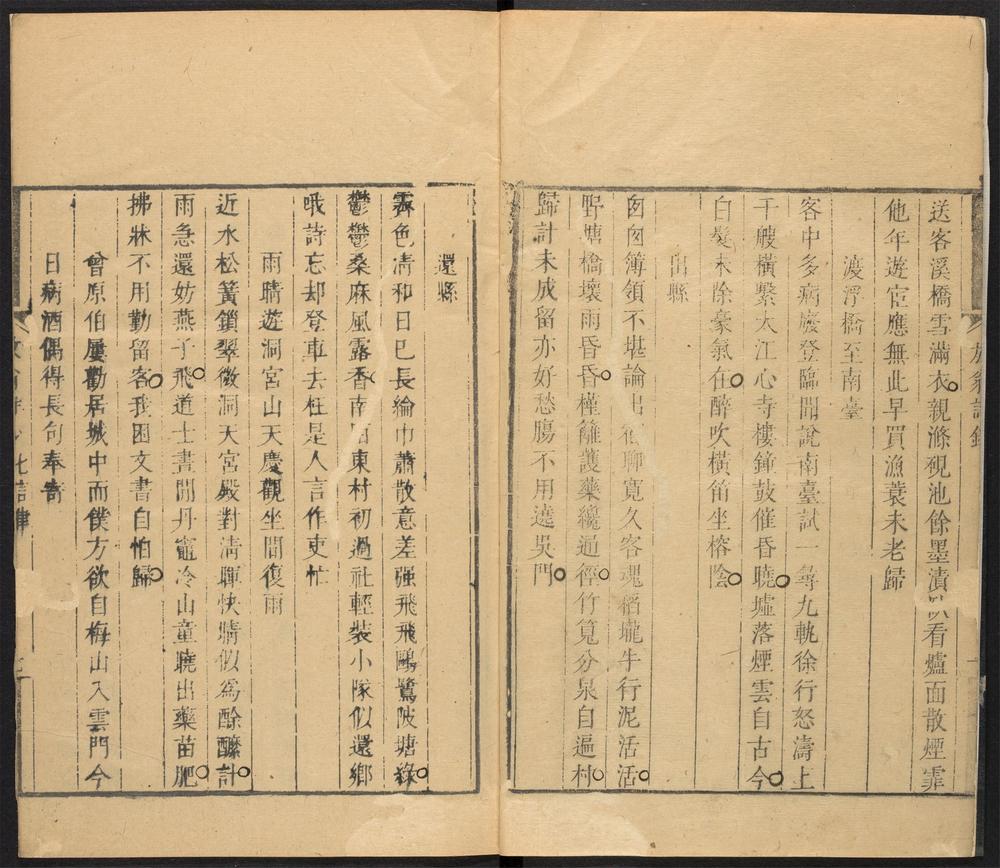 送客溪橋雪滿衣親滌硯池餘墨漬臥看爐面散煙霏
他年遊宦應無此早買漁蓑未老歸
渡浮橋至南臺
客中多病廢登臨聞說南臺試一尋九軌徐行怒濤上
千艘橫繫大江心寺樓鐘鼓催昏曉墟落煙雲自古今
白髮未除豪氣在醉吹橫笛坐榕陰
出縣
匆匆簿領不堪論出宿聊寬久客魂稻壠牛行泥活活
野塘橋壞雨昏昏槿籬護藥纔通徑竹筧分泉自遍村
歸計未成留亦好愁腸不用遶吳門
還縣
霽色清和日已長綸巾蕭散意差强飛飛鷗鷺陂塘綠
鬱鬱桑麻風露香南陌東村初過社輕裝小隊似還鄉
哦詩忘却登車去枉是人言作吏忙
雨晴遊洞宮山天慶觀坐間復雨
近水松篁鎖翠微洞天宮殿對清暉快晴似爲酴醾計
雨急還妨燕子飛道士晝閒丹竈冷山童曉出藥苗肥
拂牀不用勤留客我困文書自怕歸
曾原伯屢勸居城中而僕方欲自梅山入雲門今
日病酒偶得長句奉寄